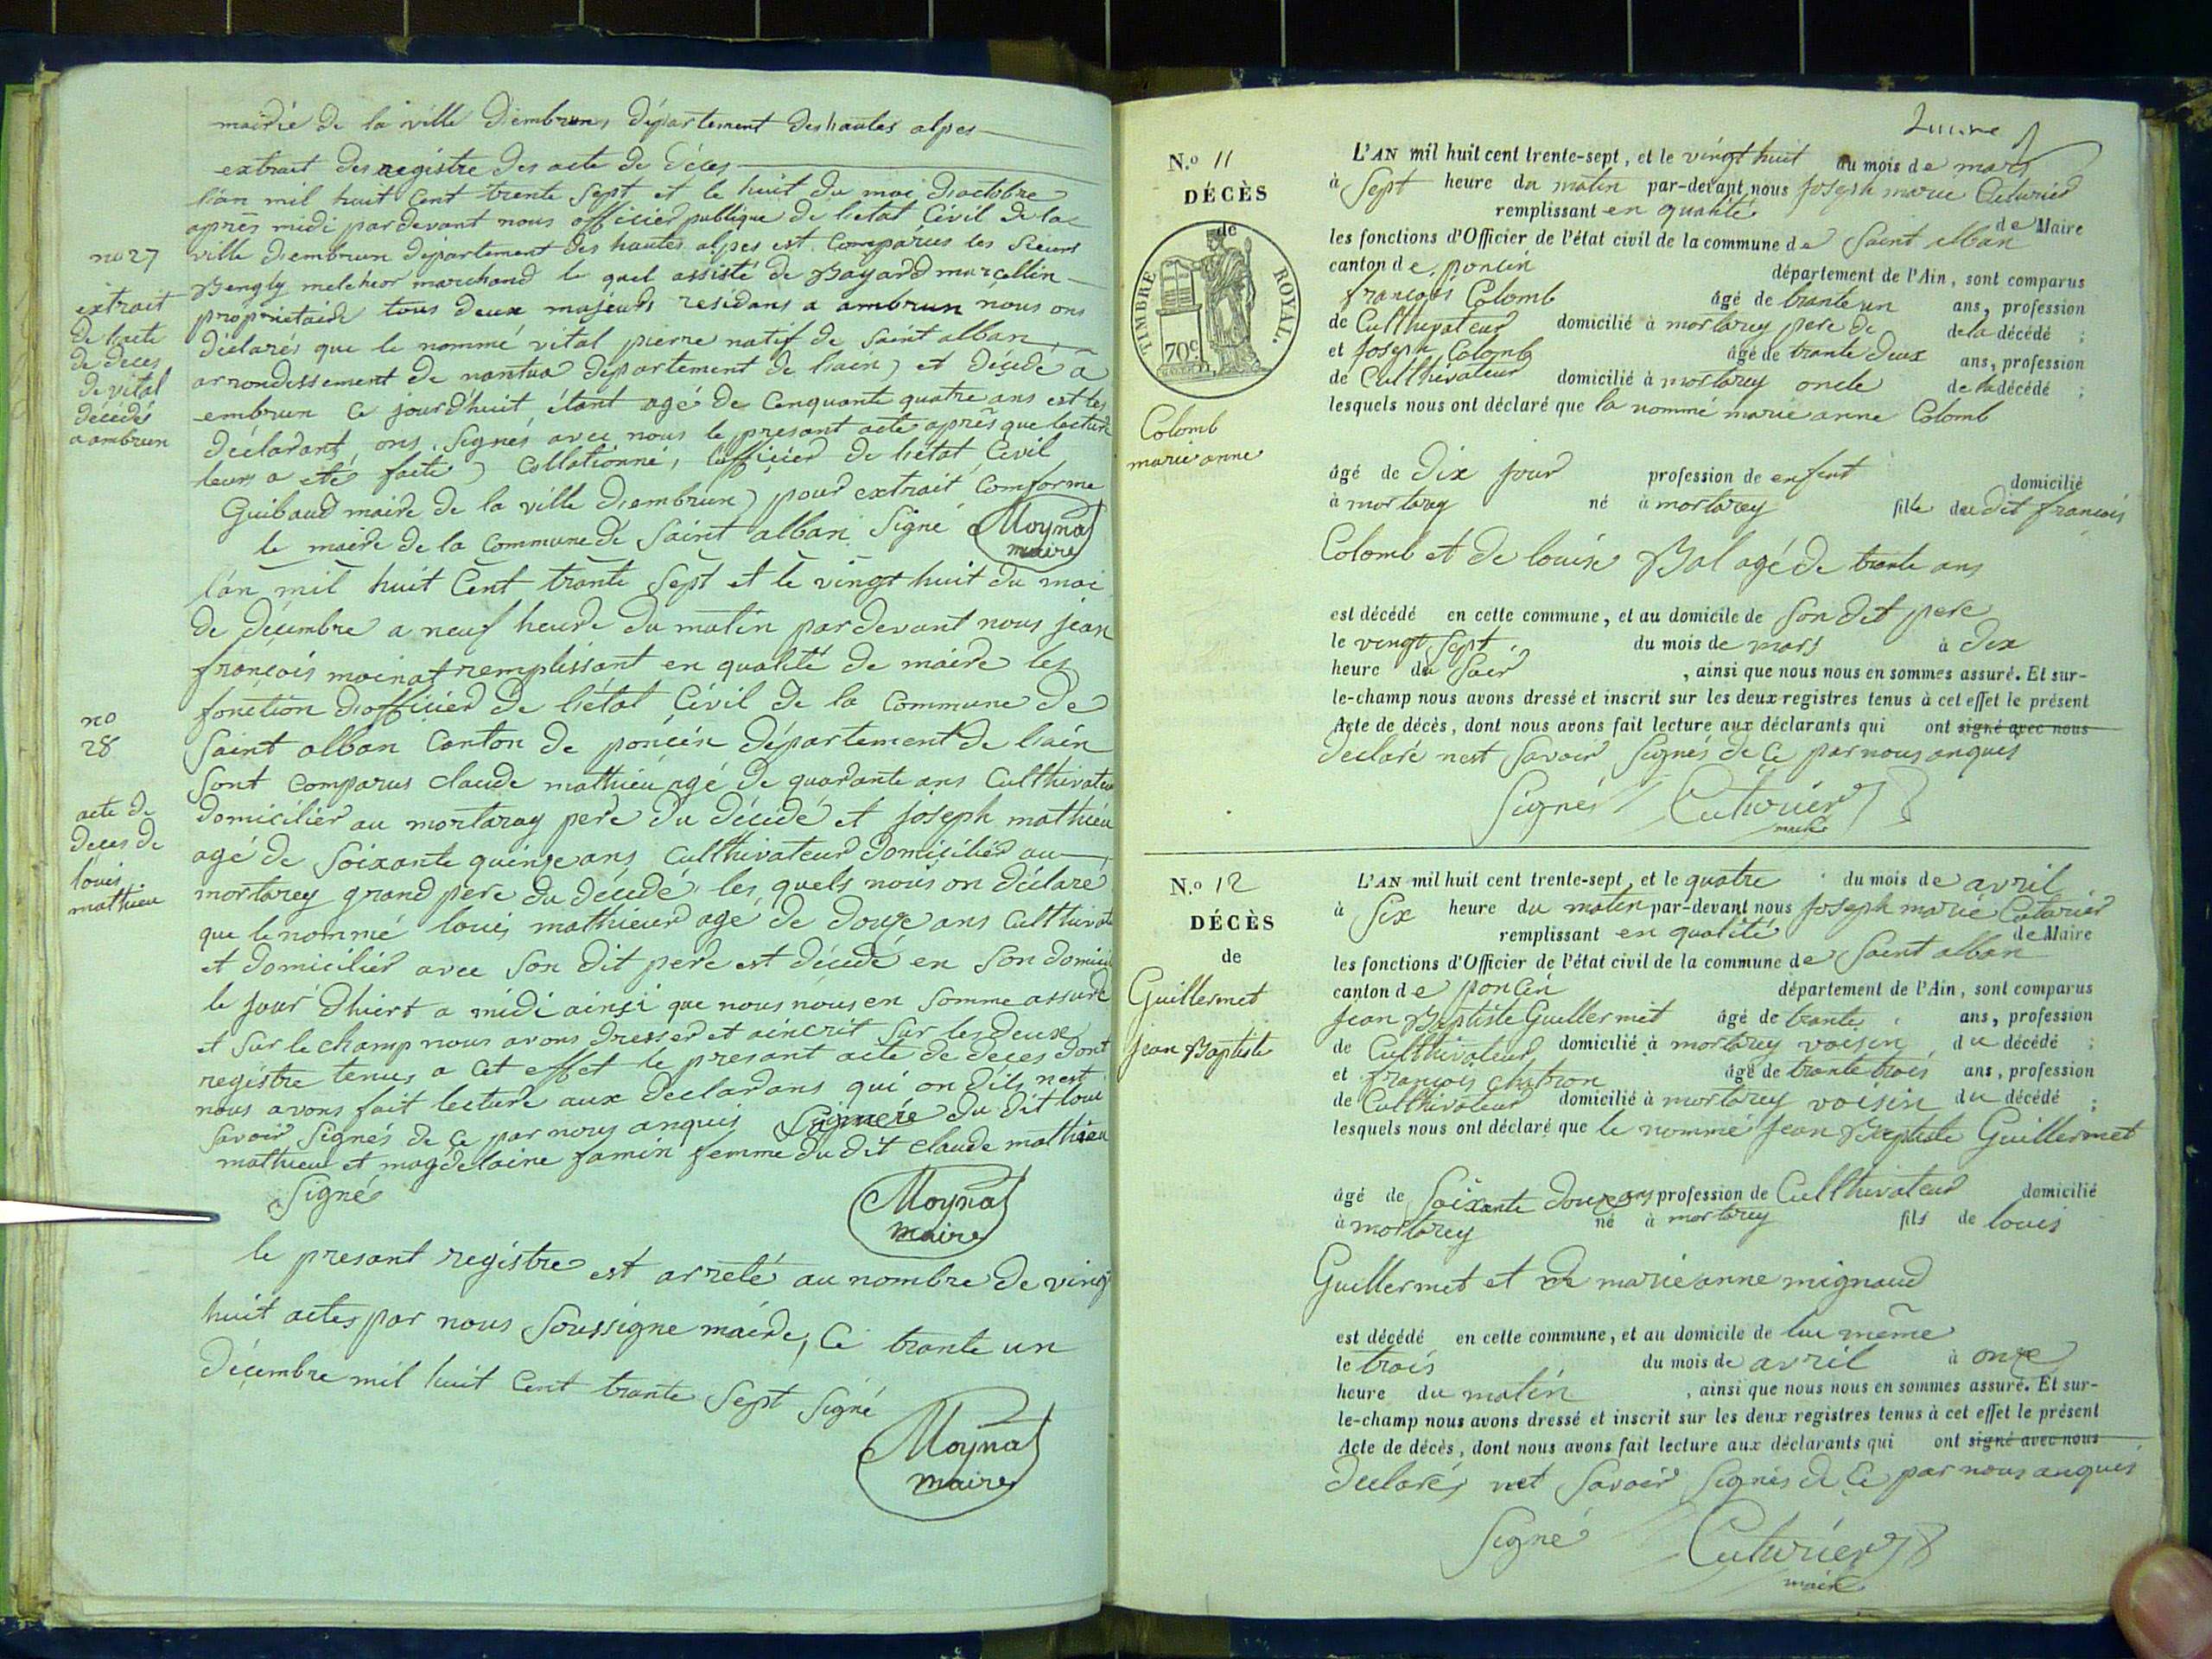 mairie de la ville d'embrun, département des hautes alpes
extrait des registre des acte de déces
l'an mil huit Cent trente Sept et le huit du moi d'octobre
après midi pardevant nous officier publique de l'etat Civil de la
ville d'embrun département des hautes alpes est Comparus les Sieurs
Bengly melchior marchand le quel assisté de Bayard marcellin
propriétaire tous deux majeurs residans a ambrun nous ons
déclarés que le nommé vital pierre natif de Saint alban
arrondissement de nantua département de l'ain, et décédé a
embrun Ce jourd'huit, étant agé de Cenquante quatre ans est les
déclarant, ons Signés avec nous le present acte après que lecture
leurs a eté faite, Collationné, l'officier de l'état Civil
Guibaud maire de la ville d'embrun, pour extrait Comforme
le maire de la Commune de Saint alban Signé Moynat
maire
no 27
extrait
de l'acte
de deces
de vital
décédé
a ambrun
l'an mil huit Cent trante Sept et le vingt huit du moi
de décembre a neuf heure du matin pardevant nous jean
françois moinat remplissant en qualité de maire les
fonction d'officier de l'état Civil de la Commune de
Saint alban Canton de poncin département de l'ain
Sont Comparus claude mathieu agé de quarante ans Culthivateur
domicilier au mortaray pere du décédé et joseph mathieu
agé de Soixante quinze ans Culthivateur domicilier au
mortarey grand pere du décédé, les quels nous on déclaré
que le nommé louis mathieur agé de douze ans Culthivat
et domicilier avec Son dit pere est décédé en Son domici
le jour d'hiert a midi ainsi que nous nous en Somme assuré
et Sur le champ nous avons dresser et aincrit Sur les deux
registre tenus a Cet effet le presant acte de deces dont
nous avons fait lecture aux declarans qui on dits nest
Savoir Signés de Ce par nous anquis du dit loui
mathieu et magdelaine famin femme du dit claude mathieu
Signés
Moynat
maire
no
28
acte de
deces de
louis
mathieu
le presant registre est arrêté au nombre de vingt
huit actes par nous Soussigne maire, Ce trante un
Décembre mil huit Cent trante Sept Signé
Moynat
maire
N.º 11
DÉCÈS
de
TIMBRE ROYAL.
70c
Colomb
marie anne
L'AN mil huit cent trente-sept, et le vingt huit du mois de mars
à Sept heure du matin par-devant nous joseph marie Cuturier
remplissant en qualité de Maire
les fonctions d'Officier de l'état civil de la commune de Saint alban
canton de poncin département de l'Ain, sont comparus
françois Colomb âgé de trante un ans, profession
de Culthivateur domicilié à mortarey pere de de la décédé ;
et joseph Colomb âgé de trante deux ans, profession
de Culthivateur domicilié à mortarey oncle de la décédé ;
lesquels nous ont déclaré que la nommé marie anne Colomb
âgé de dix jour profession de enfent domicilié
à mortarey né à mortarey fille du dit françois
Colomb et de louise Bal agé de trante ans
est décédé en cette commune, et au domicile de Son dit pere
le vingt Sept du mois de mars à dix
heure du Soir , ainsi que nous nous en sommes assuré. Et sur-
le-champ nous avons dressé et inscrit sur les deux registres tenus à cet effet le présent
Acte de décès, dont nous avons fait lecture aux déclarants qui ont signé avec nous
declaré nest Savoir Signés de Ce par nous anquis
Signés Cuturier
maire
N.º 12
DÉCÈS
de
Guillermet
jean Baptiste
L'AN mil huit cent trente-sept, et le quatre du mois de avril
à Six heure du matin par-devant nous joseph marie Cuturier
remplissant en qualité de Maire
les fonctions d'Officier de l'état civil de la commune de Saint alban
canton de poncin département de l'Ain, sont comparus
jean Baptiste Guillermet âgé de trante ans, profession
de Culthivateur domicilié à mortarey voisin du décédé ;
et françois chitron âgé de trante trois ans, profession
de Culthivateur domicilié à mortarey voisin du décédé ;
lesquels nous ont déclaré que le nommé jean Baptiste Guillermet
âgé de Soixante douze ans profession de Culthivateur domicilié
à mortarey né à mortarey fils de louis
Guillermet et de marie anne mignaud
est décédé en cette commune, et au domicile de lui même
le trois du mois de avril à onze
heure du matin , ainsi que nous nous en sommes assuré. Et sur-
le-champ nous avons dressé et inscrit sur les deux registres tenus à cet effet le présent
Acte de décès, dont nous avons fait lecture aux déclarants qui ont signé avec nous
declarés net Savoir Signés de Ce par nous anquis
Signé Cuturier
maire